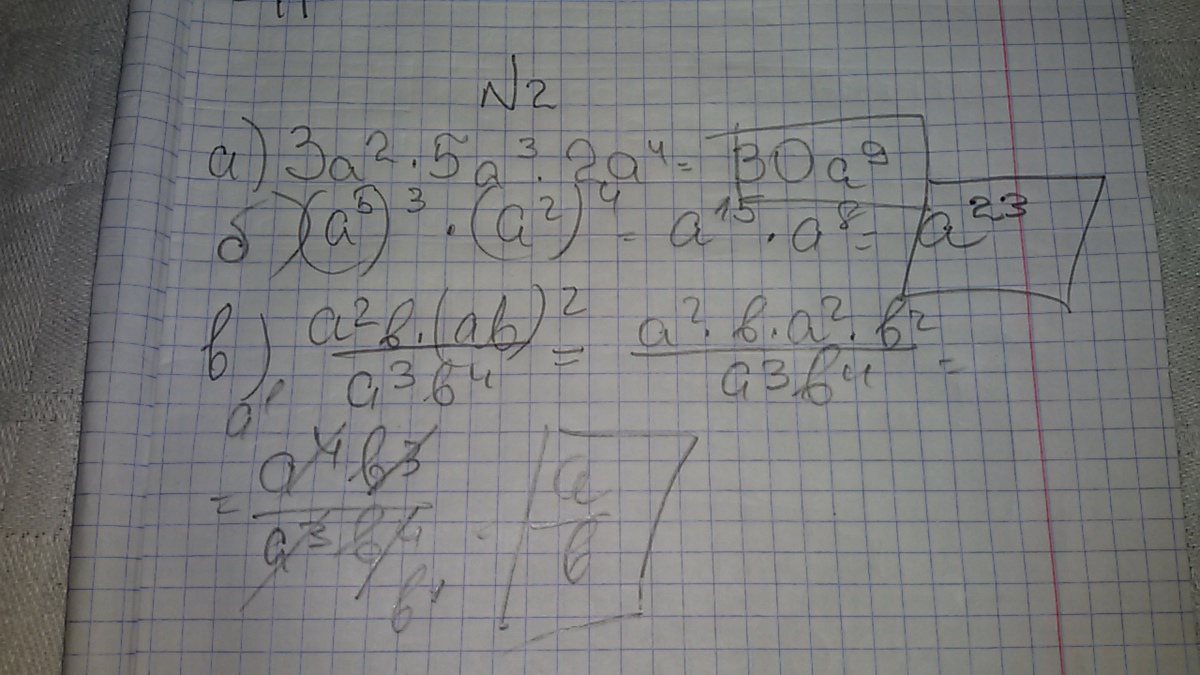 №2
а) 3a² · 5a³ · 2a⁴ = 30a⁹
б) (a⁵)³ · (a²)⁴ = a¹⁵ · a⁸ = a²³
в) a²b · (ab)² / a³b⁴ = a² · b · a² · b² / a³b⁴ =
a¹
= a⁴b³ / a³b⁴ = a / b
b¹